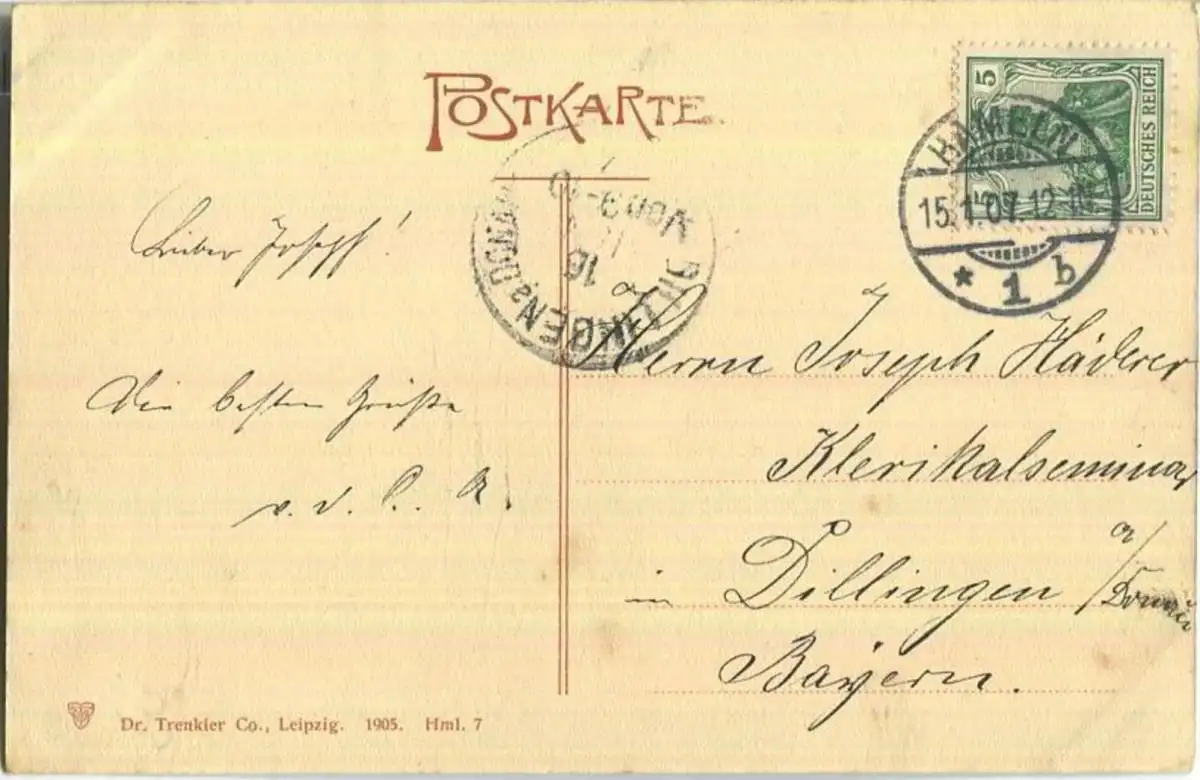 POSTKARTE
5
DEUTSCHES REICH
HAMELN
15.1.07. 12-1N.
* 1 b
DILLINGEN a DONAU
16
Vor 9-10
Lieber Joseph!
Die besten Grüße
v. d. C. A.
Herrn Joseph Häderer
Klerikalseminar
in Dillingen a/Donau
Bayern.
Dr. Trenkler Co., Leipzig. 1905. Hml. 7